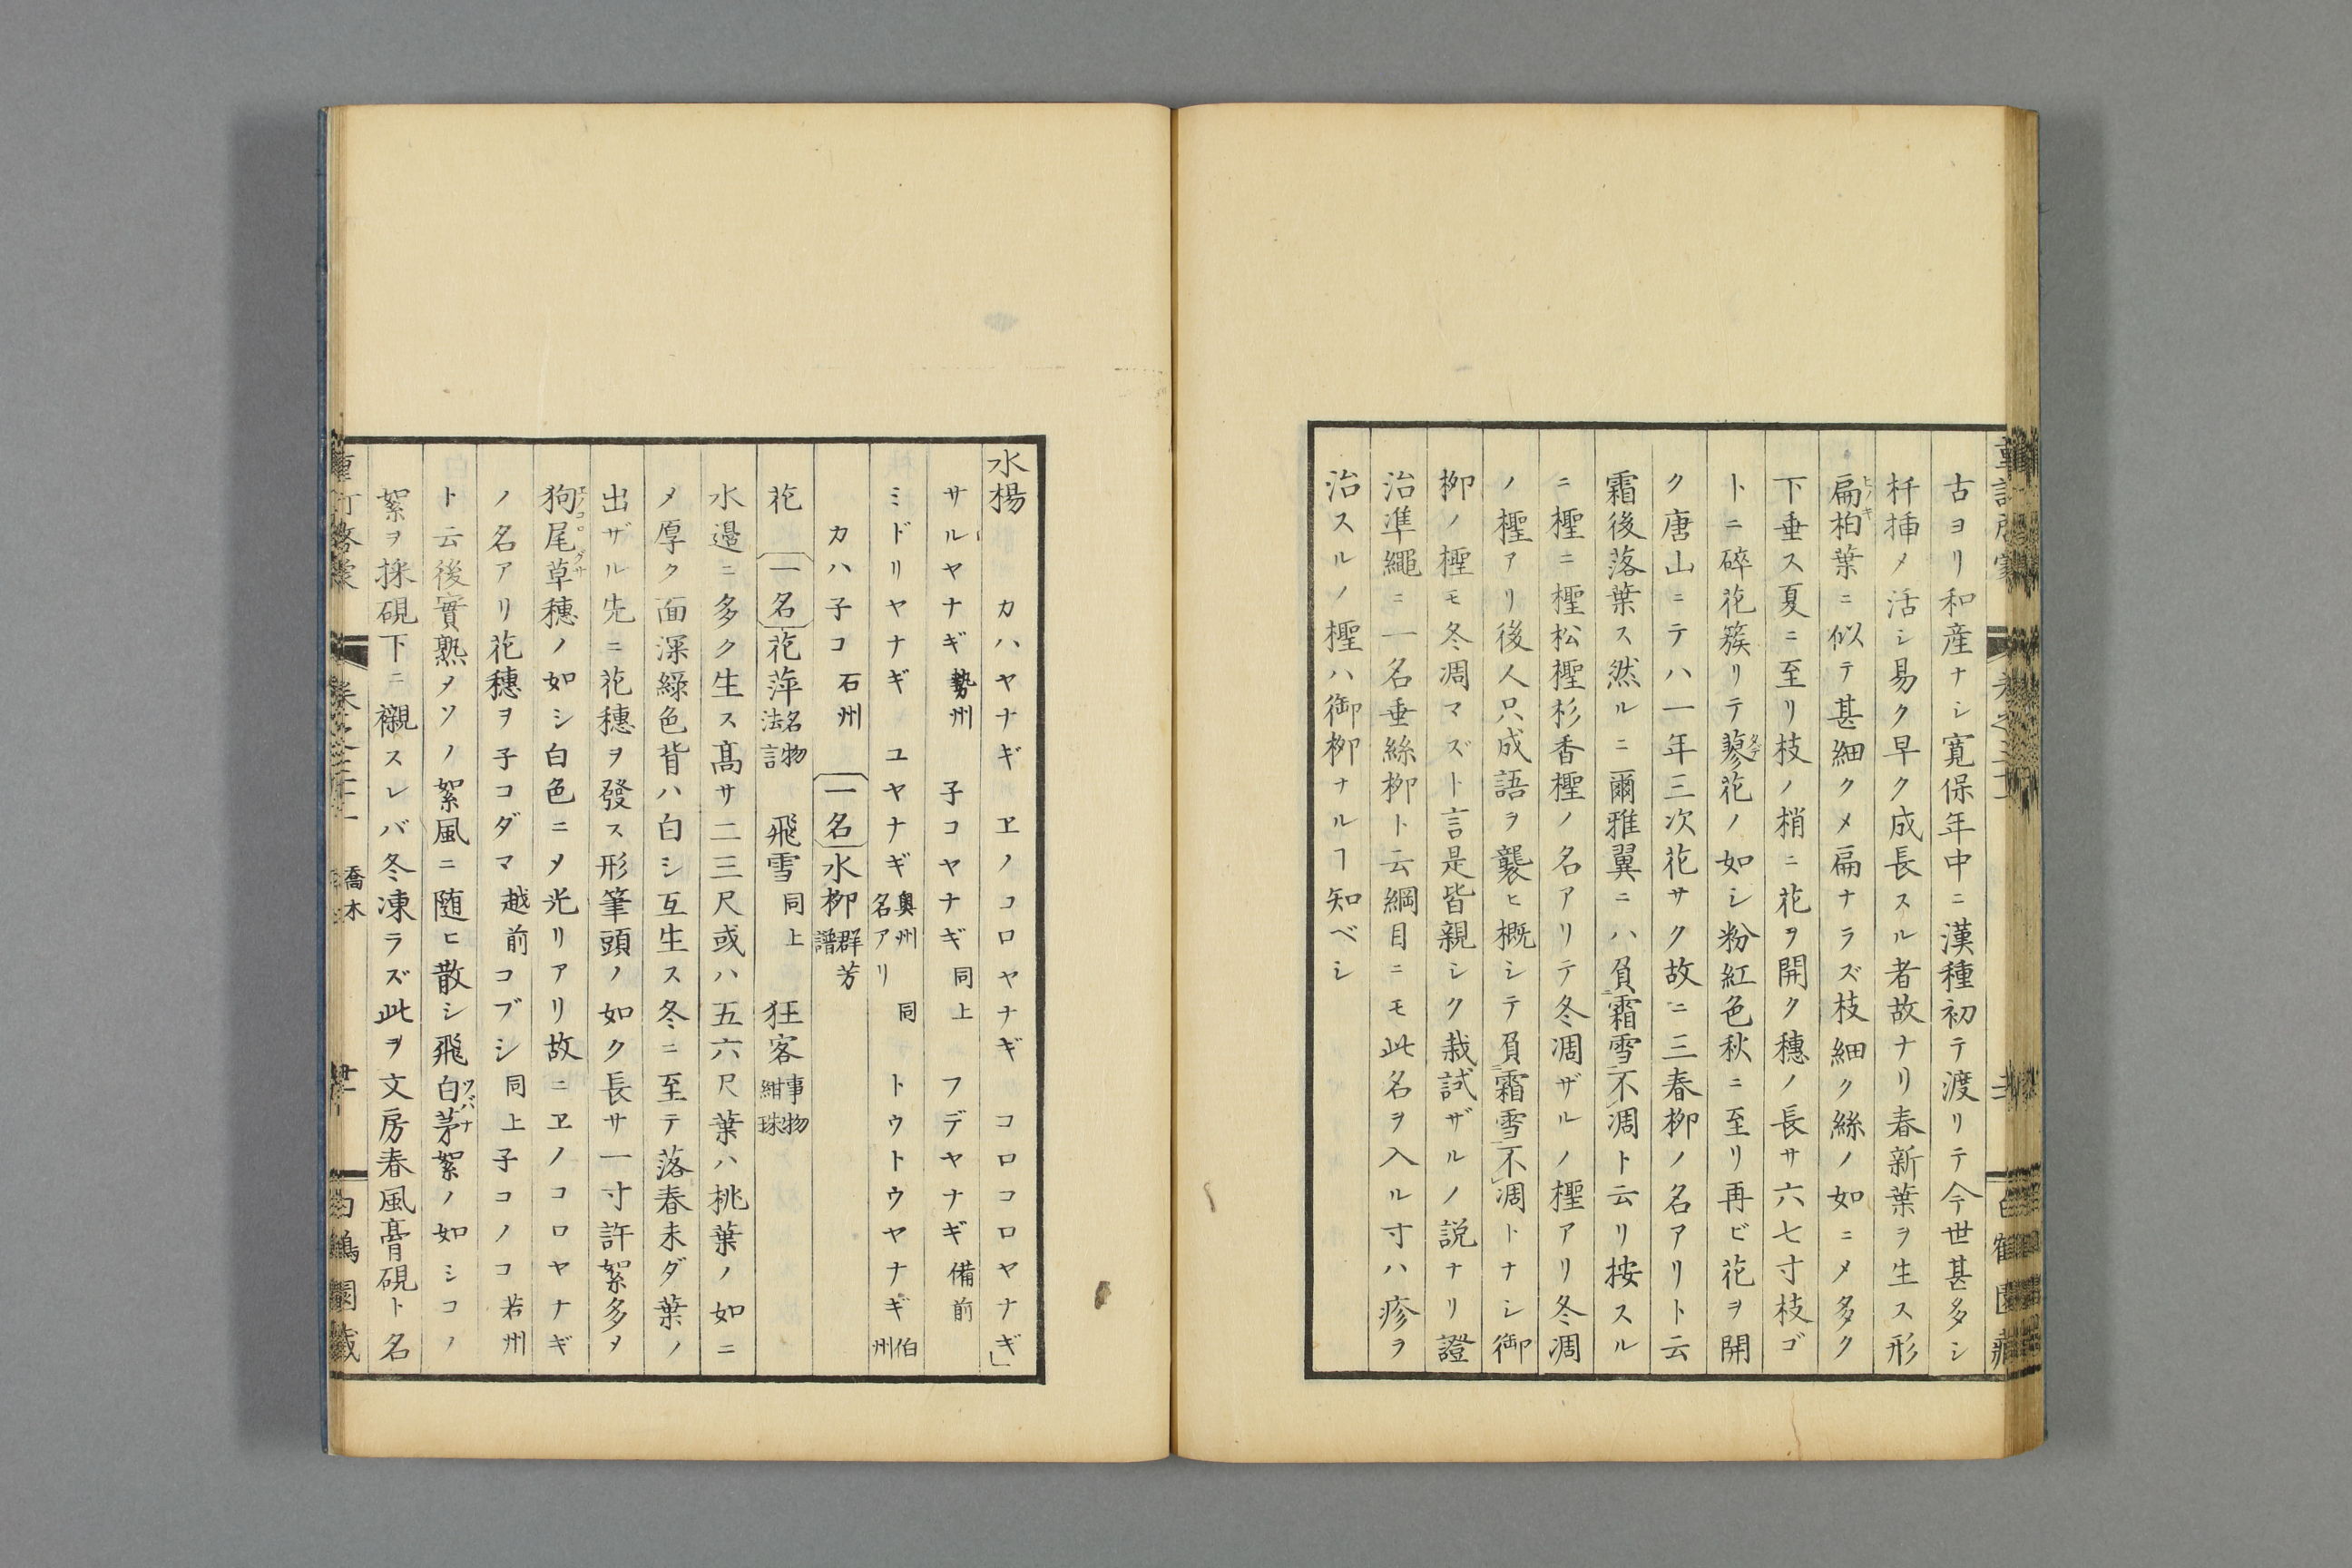 古ヨリ和産ナシ寛保年中ニ漢種初テ渡リテ今世甚多シ
杆揷メ活シ易ク早ク成長スル者故ナリ春新葉ヲ生ス形
扁柏葉ニ似テ甚細クメ扁ナラズ枝細ク絲ノ如ニメ多ク
ヒノキ
下垂ス夏ニ至リ枝ノ梢ニ花ヲ開ク穗ノ長サ六七寸枝ゴ
トニ碎花簇リテ蓼花ノ如シ粉紅色秋ニ至リ再ビ花ヲ開
タデ
ク唐山ニテハ一年三次花サク故ニ三春柳ノ名アリト云
霜後落葉ス然ルニ爾雅翼ニハ負霜雪不凋ト云リ按スル
ニ檉ニ檉松檉杉香檉ノ名アリテ冬凋ザルノ檉アリ冬凋
ノ檉アリ後人只成語ヲ襲ヒ概シテ負霜雪不凋トナシ御
柳ノ檉モ冬凋マズト言是皆親シク栽試ザルノ説ナリ證
治凖繩ニ一名垂絲柳ト云綱目ニモ此名ヲ入ル寸ハ疹ヲ
治スルノ檉ハ御柳ナルヿ知ベシ
水楊 カハヤナギ ヱノコロヤナギ コロコロヤナギ」
サルヤナギ勢州 子コヤナギ同上 フデヤナギ備前
ミドリヤナギ ユヤナギ奥州名アリ 同 トウトウヤナギ伯州
カハ子コ石州 一名水柳群芳譜
花 一名花萍名物法言 飛雪同上 狂客事物紺珠
水邉ニ多ク生ス髙サ二三尺或ハ五六尺葉ハ桃葉ノ如ニ
メ厚ク面深緑色背ハ白シ互生ス冬ニ至テ落春未ダ葉ノ
出ザル先ニ花穗ヲ發ス形筆頭ノ如ク長サ一寸許絮多メ
狗尾草穗ノ如シ白色ニメ光リアリ故ニヱノコロヤナギ
ヱノコログサ
ノ名アリ花穗ヲ子コダマ越前コブシ同上子コノコ若州
ト云後實熟メソノ絮風ニ随ヒ散シ飛白茅絮ノ如シコノ
ツバナ
絮ヲ採硯下ニ襯スレバ冬凍ラズ此ヲ文房春風膏硯ト名
喬木